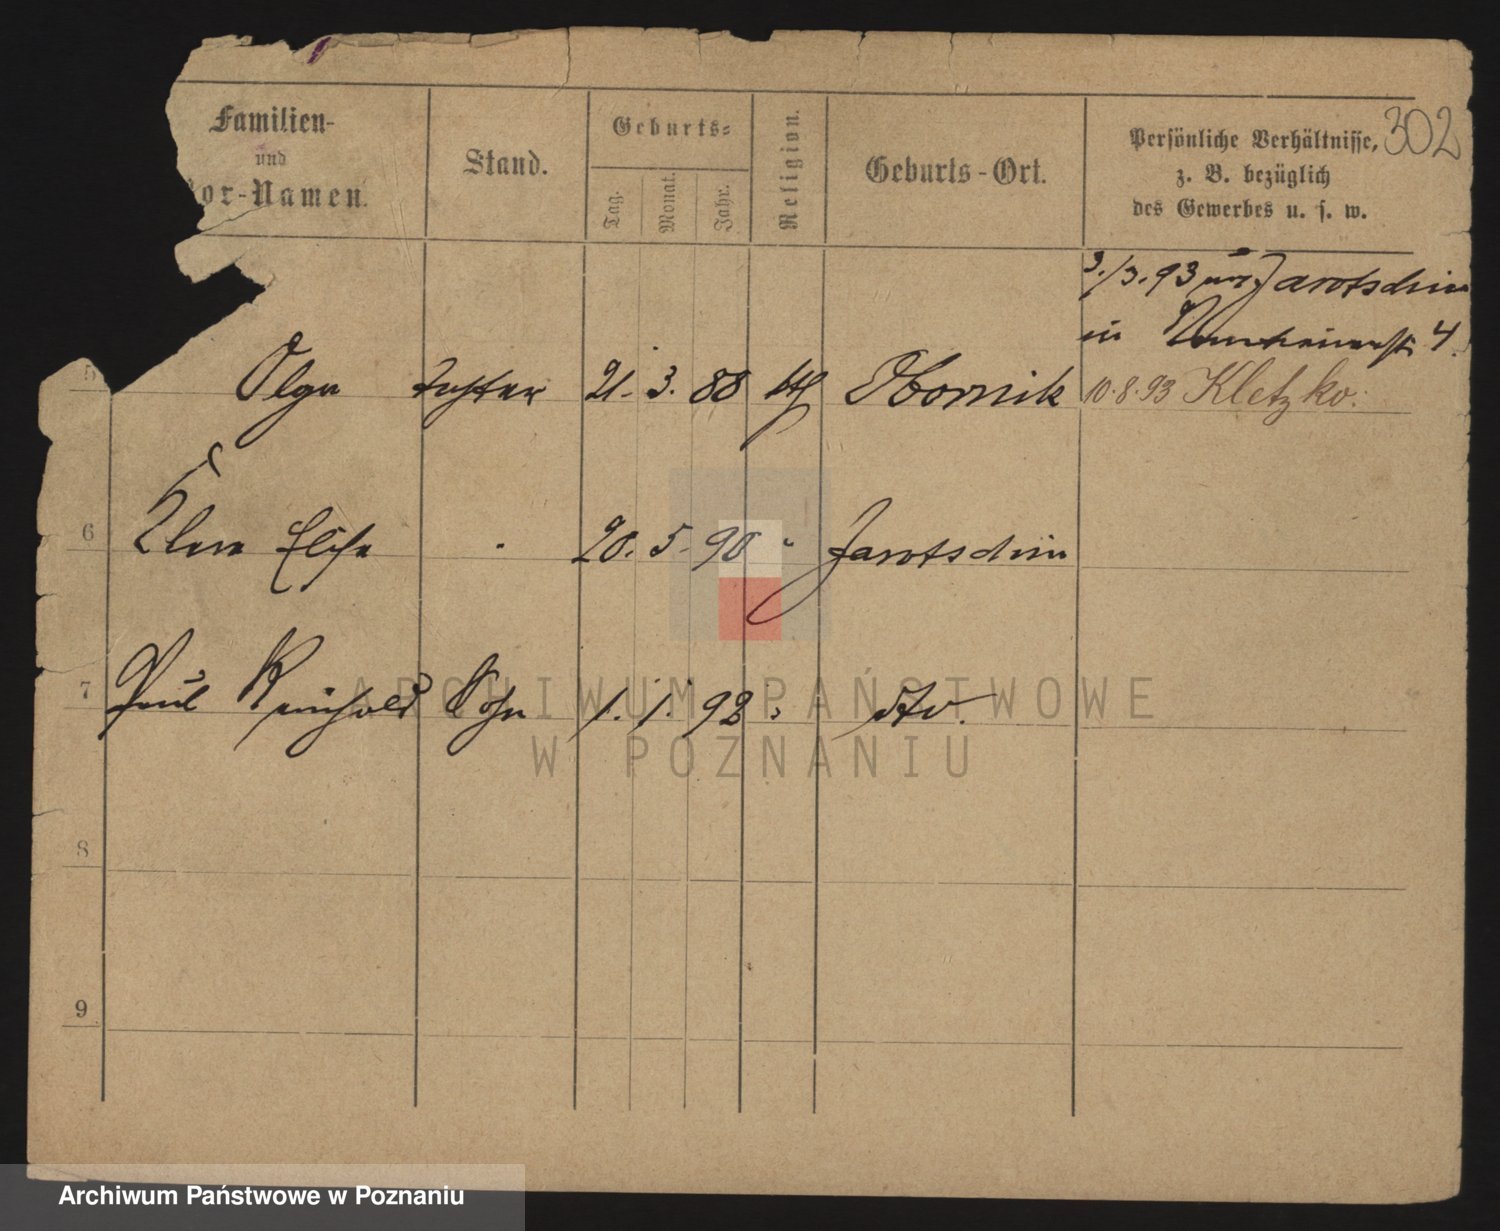 302
Familien-
und
or-Namen.
Stand.
Geburts-
Tag.
Monat.
Jahr.
Religion.
Geburts-Ort.
Persönliche Verhältnisse,
z. B. bezüglich
des Gewerbes u. s. w.
3./3.93 Jarotschin
in 4.
5 Olga Tochter 21. 3. 88 kth Obornik 10.8.93 Kletzko.
6 Clara Elise " 20. 5. 90 " Jarotschin
7 Paul Reinhold Sohn 1. 1. 92 " dto.
8
9
ARCHIWUM PAŃSTWOWE
W POZNANIU
Archiwum Państwowe w Poznaniu